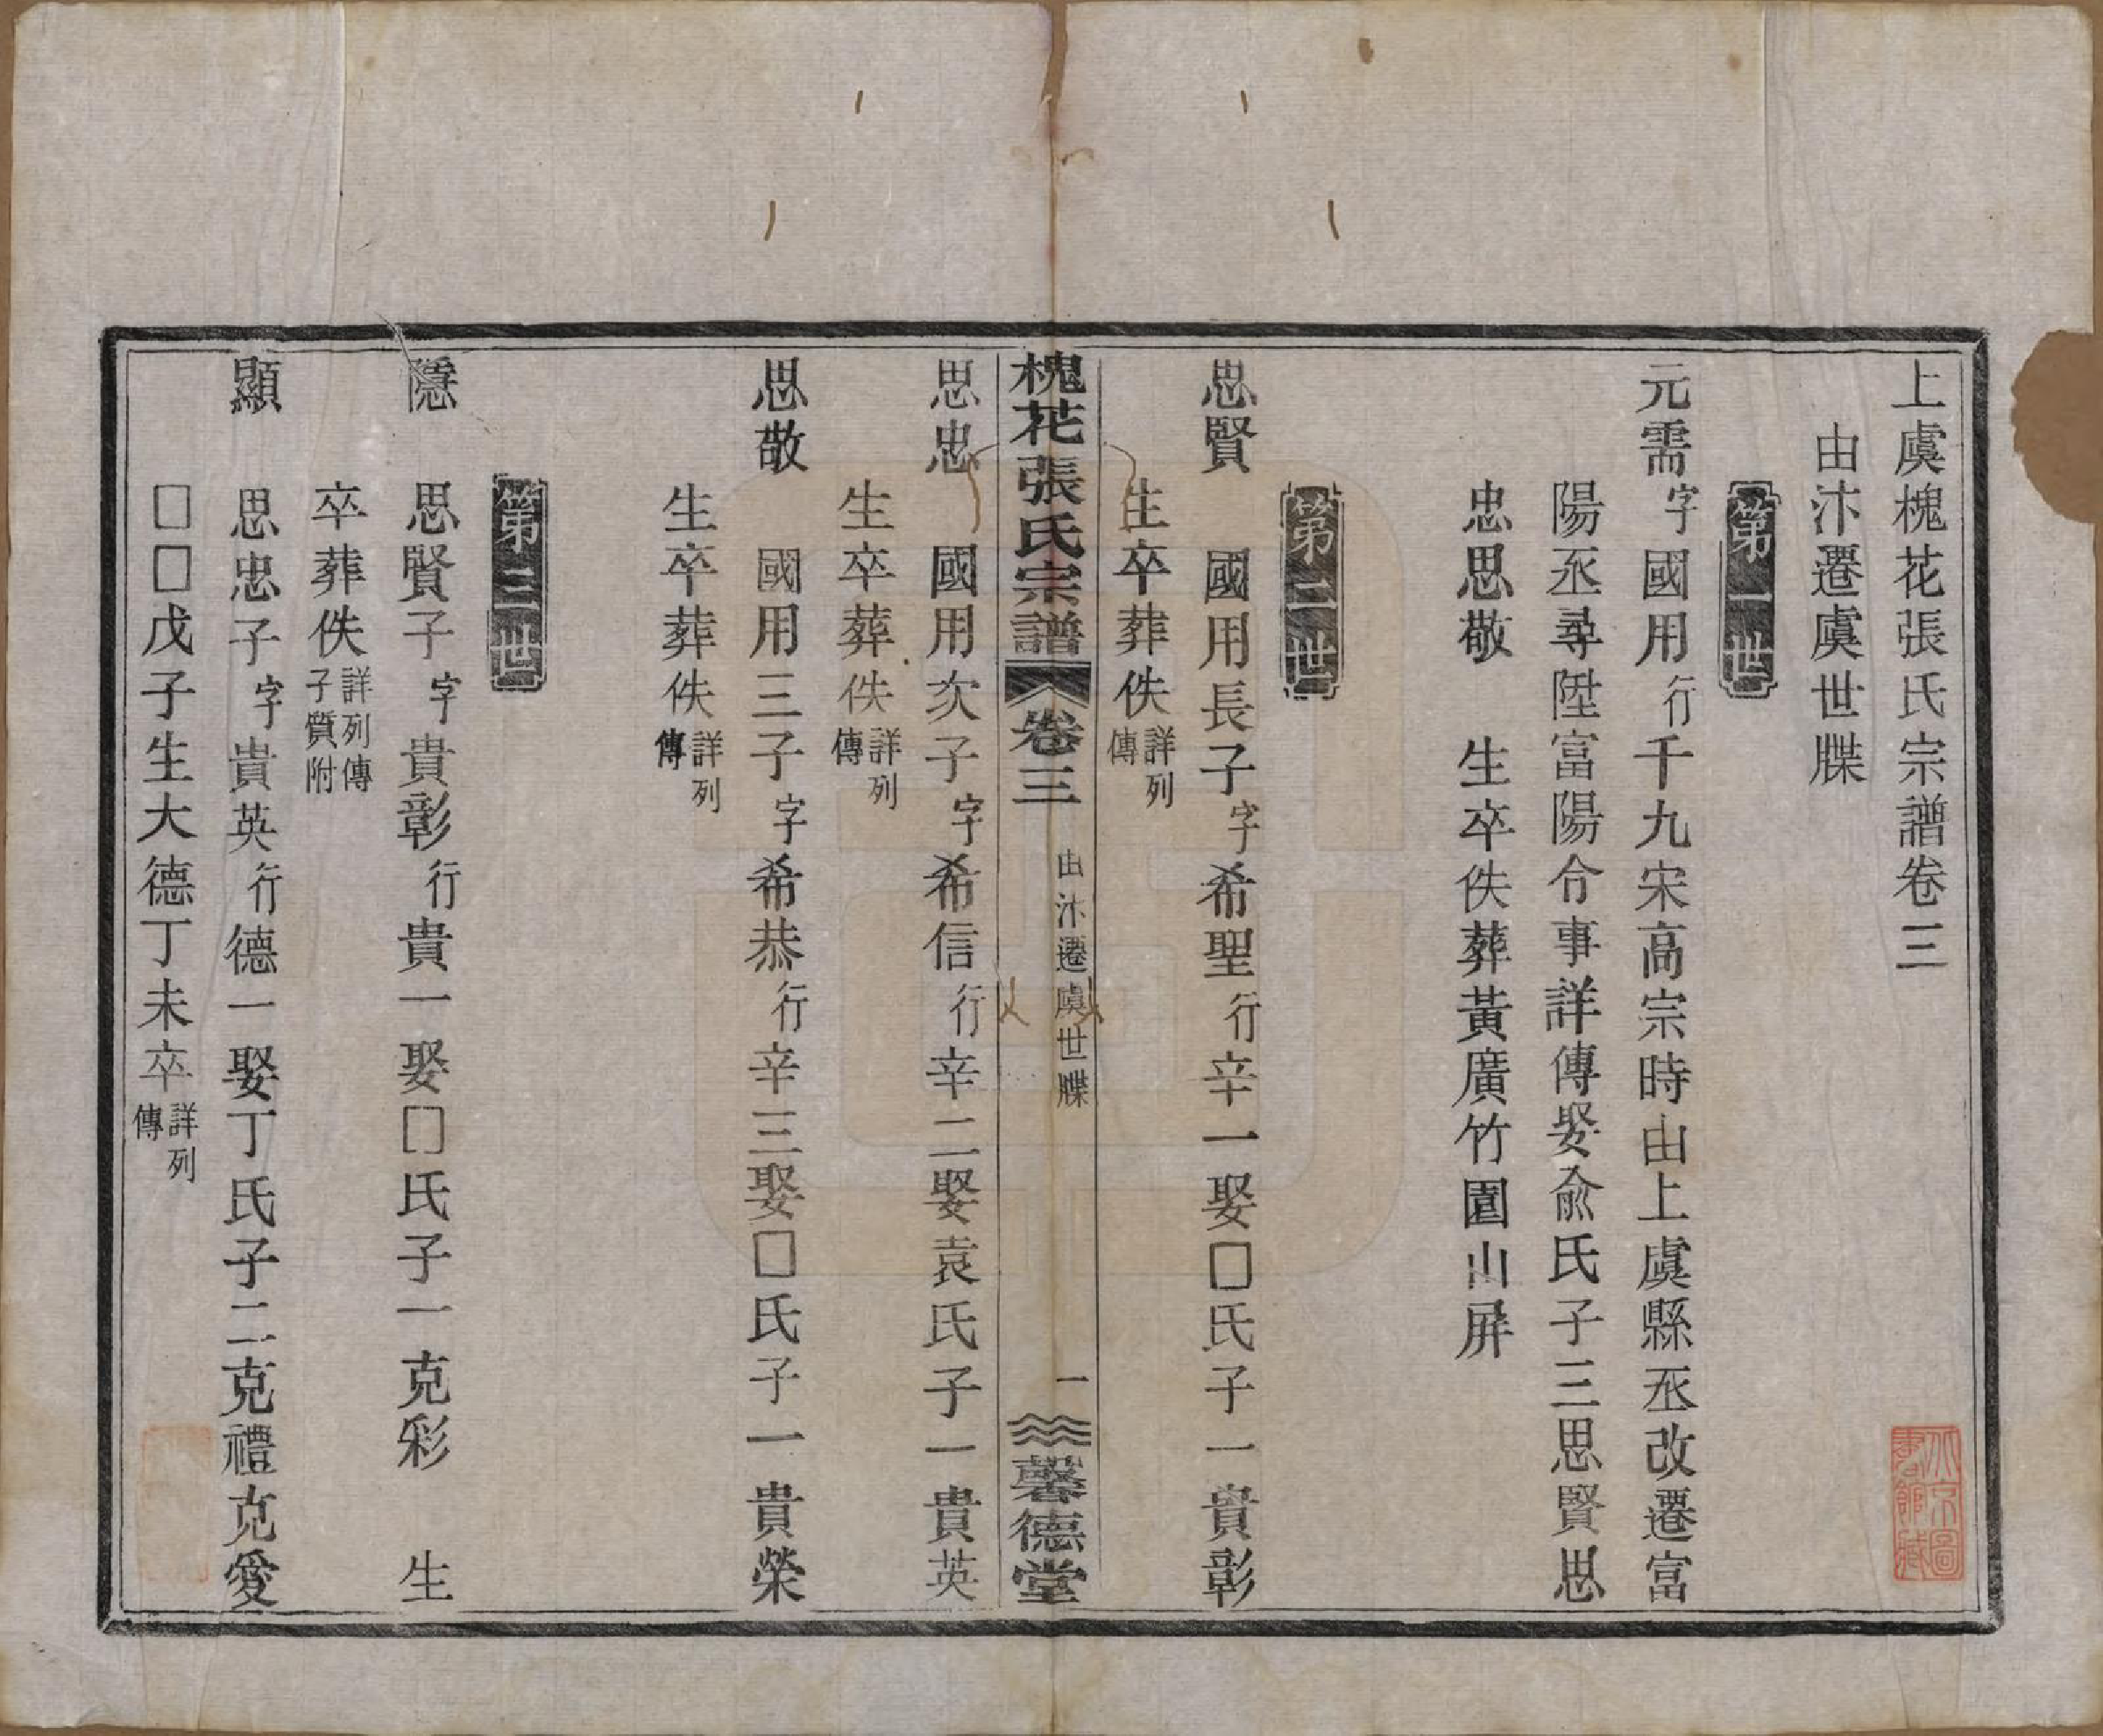 上虞槐花張氏宗譜卷三
由汴遷虞世牒
第一世
元需字國用行千九宋高宗時由上虞縣丞改遷富
陽丞尋陞富陽令事詳傳娶兪氏子三思賢思
忠思敬　生卒佚葬黃廣竹園山屏
第二世
思賢　國用長子字希聖行辛一娶□氏子一貴彰
生卒葬佚詳列傳
槐花張氏宗譜　卷三　由汴遷虞世牒　一　馨德堂
思忠　國用次子字希信行辛二娶袁氏子一貴英
生卒葬佚詳列傳
思敬　國用三子字希恭行辛三娶□氏子一貴榮
生卒葬佚詳列傳
第三世
隱　思賢子字貴彰行貴一娶□氏子一克彩　生
卒葬佚詳列傳子質附
顯　思忠子字貴英行德一娶丁氏子二克禮克愛
□□戊子生大德丁未卒詳列傳